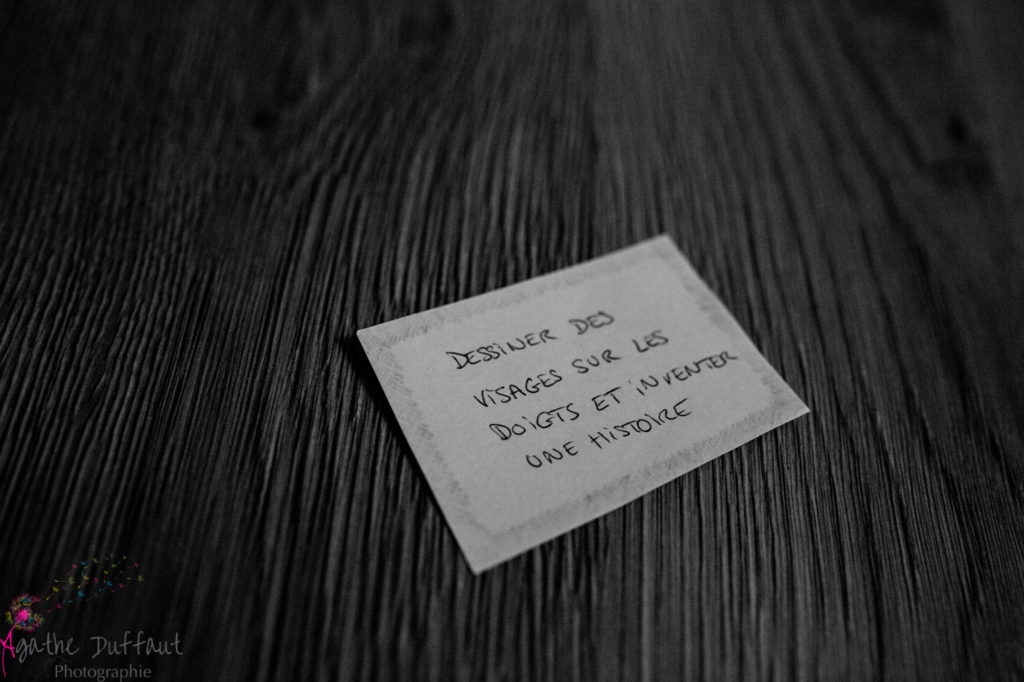 DESSINER DES
VISAGES SUR LES
DOIGTS ET INVENTER
UNE HISTOIRE
Agathe Duffaut
Photographie